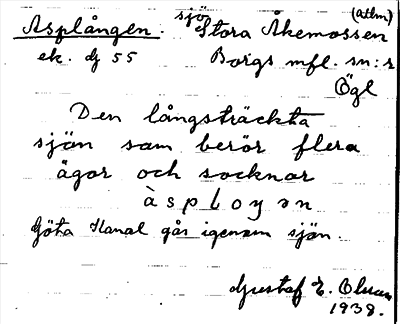 Asplången. sjö Stora Åkemossen (attm)
ek. dj 55 Borgs mfl. sn:r
Ögl
Den långsträckta
sjön som berör flera
ägor och socknar
àsploŋən
Göta Kanal går igenom sjön.
Gustaf E. Olsson
1938.